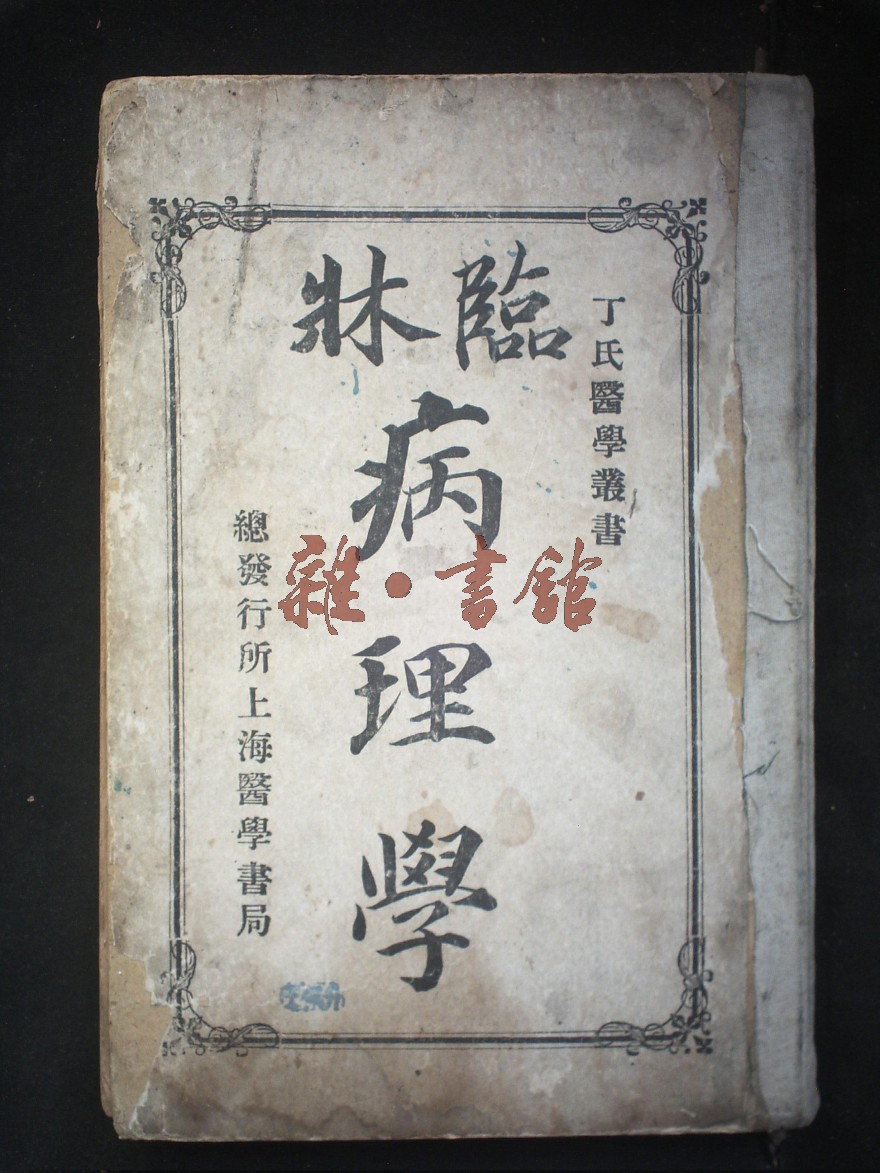 丁氏醫學叢書
臨牀
病
理
學
總發行所上海醫學書局
雜·書館